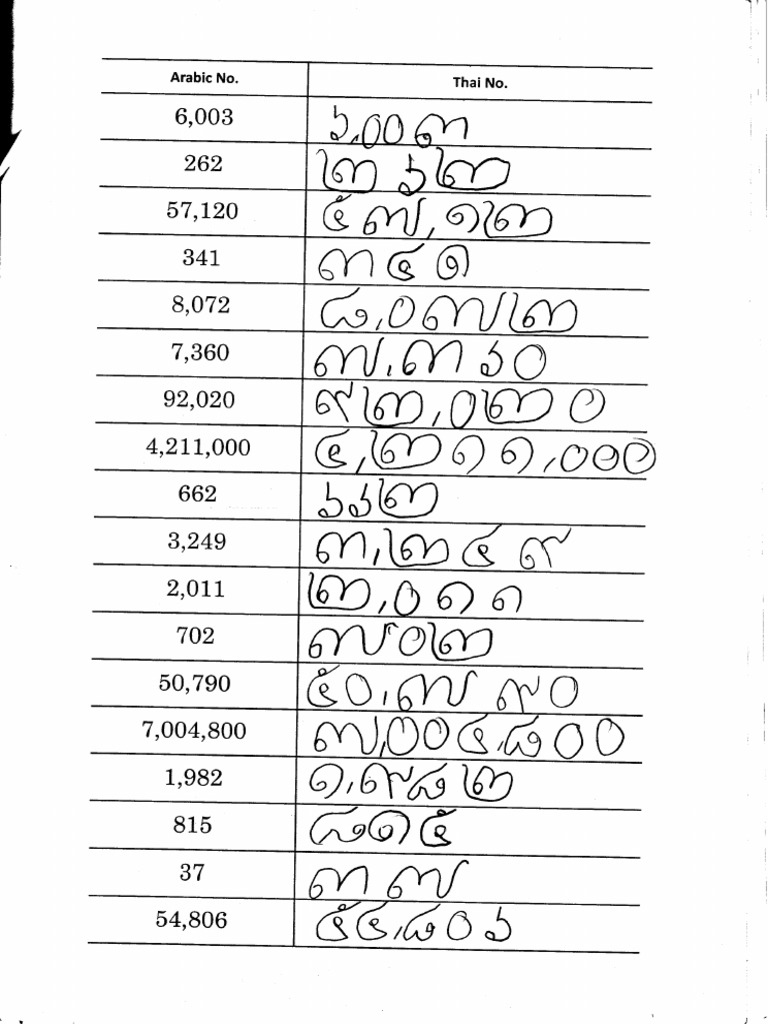 Arabic No. Thai No.
6,003 ๖,๐๐๓
262 ๒๖๒
57,120 ๕๗,๑๒
341 ๓๔๑
8,072 ๘,๐๗๒
7,360 ๗,๓๖๐
92,020 ๙๒,๐๒๐
4,211,000 ๔,๒๑๑,๐๐๐
662 ๖๖๒
3,249 ๓,๒๔๙
2,011 ๒,๐๑๑
702 ๗๐๒
50,790 ๕๐,๗๙๐
7,004,800 ๗,๐๐๔,๘๐๐
1,982 ๑,๙๘๒
815 ๘๑๕
37 ๓๗
54,806 ๕๔,๘๐๖